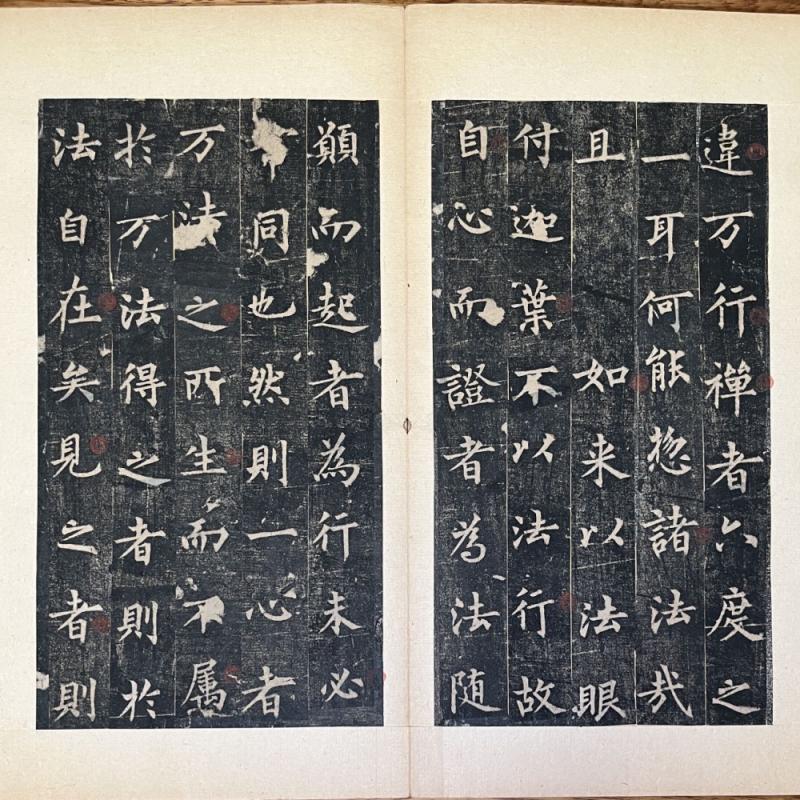 違万行禅者六度之
一耳何能惣諸法哉
且如来以法眼
付迦葉不以法行故
自心而證者為法随
願而起者為行未必
同也然則一心者
万法之所生而不属
於万法得之者則於
法自在矣見之者則